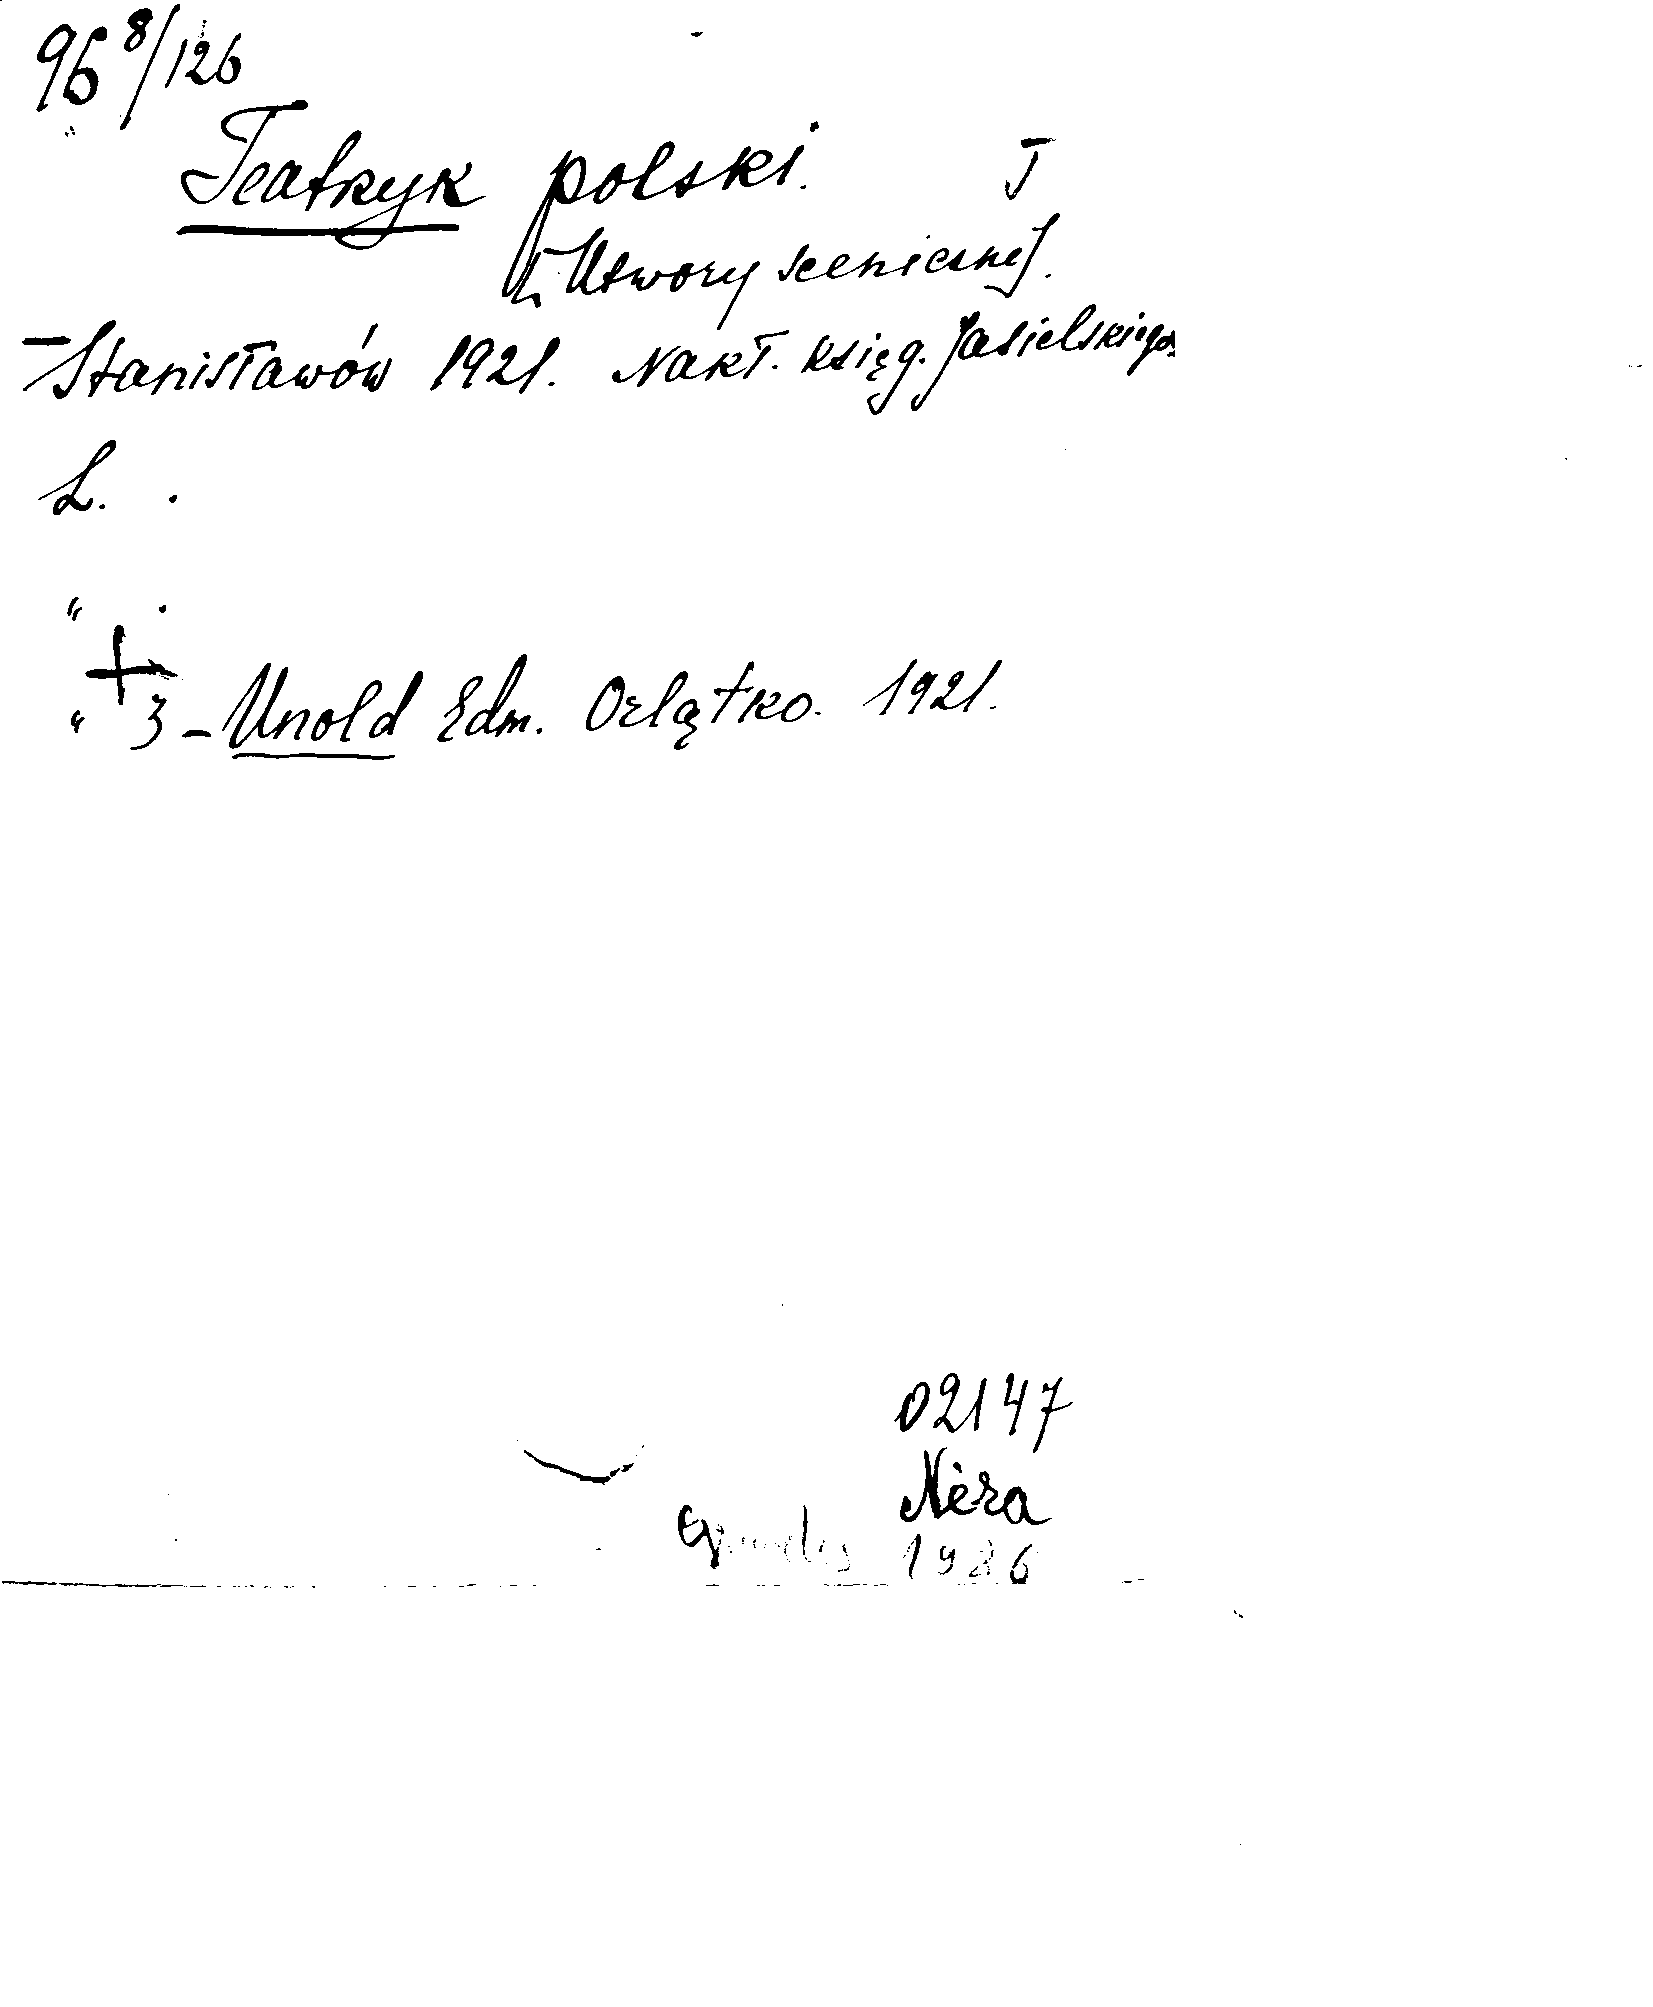 96 8/126
Teatryk polski. T
[Utwory sceniczne].
Stanisławów 1921. Nakł. Księg. Jasielskiego.
L. .
" .
" 3 - Unold Edm. Orlątko. 1921.
02147
Néra
1986